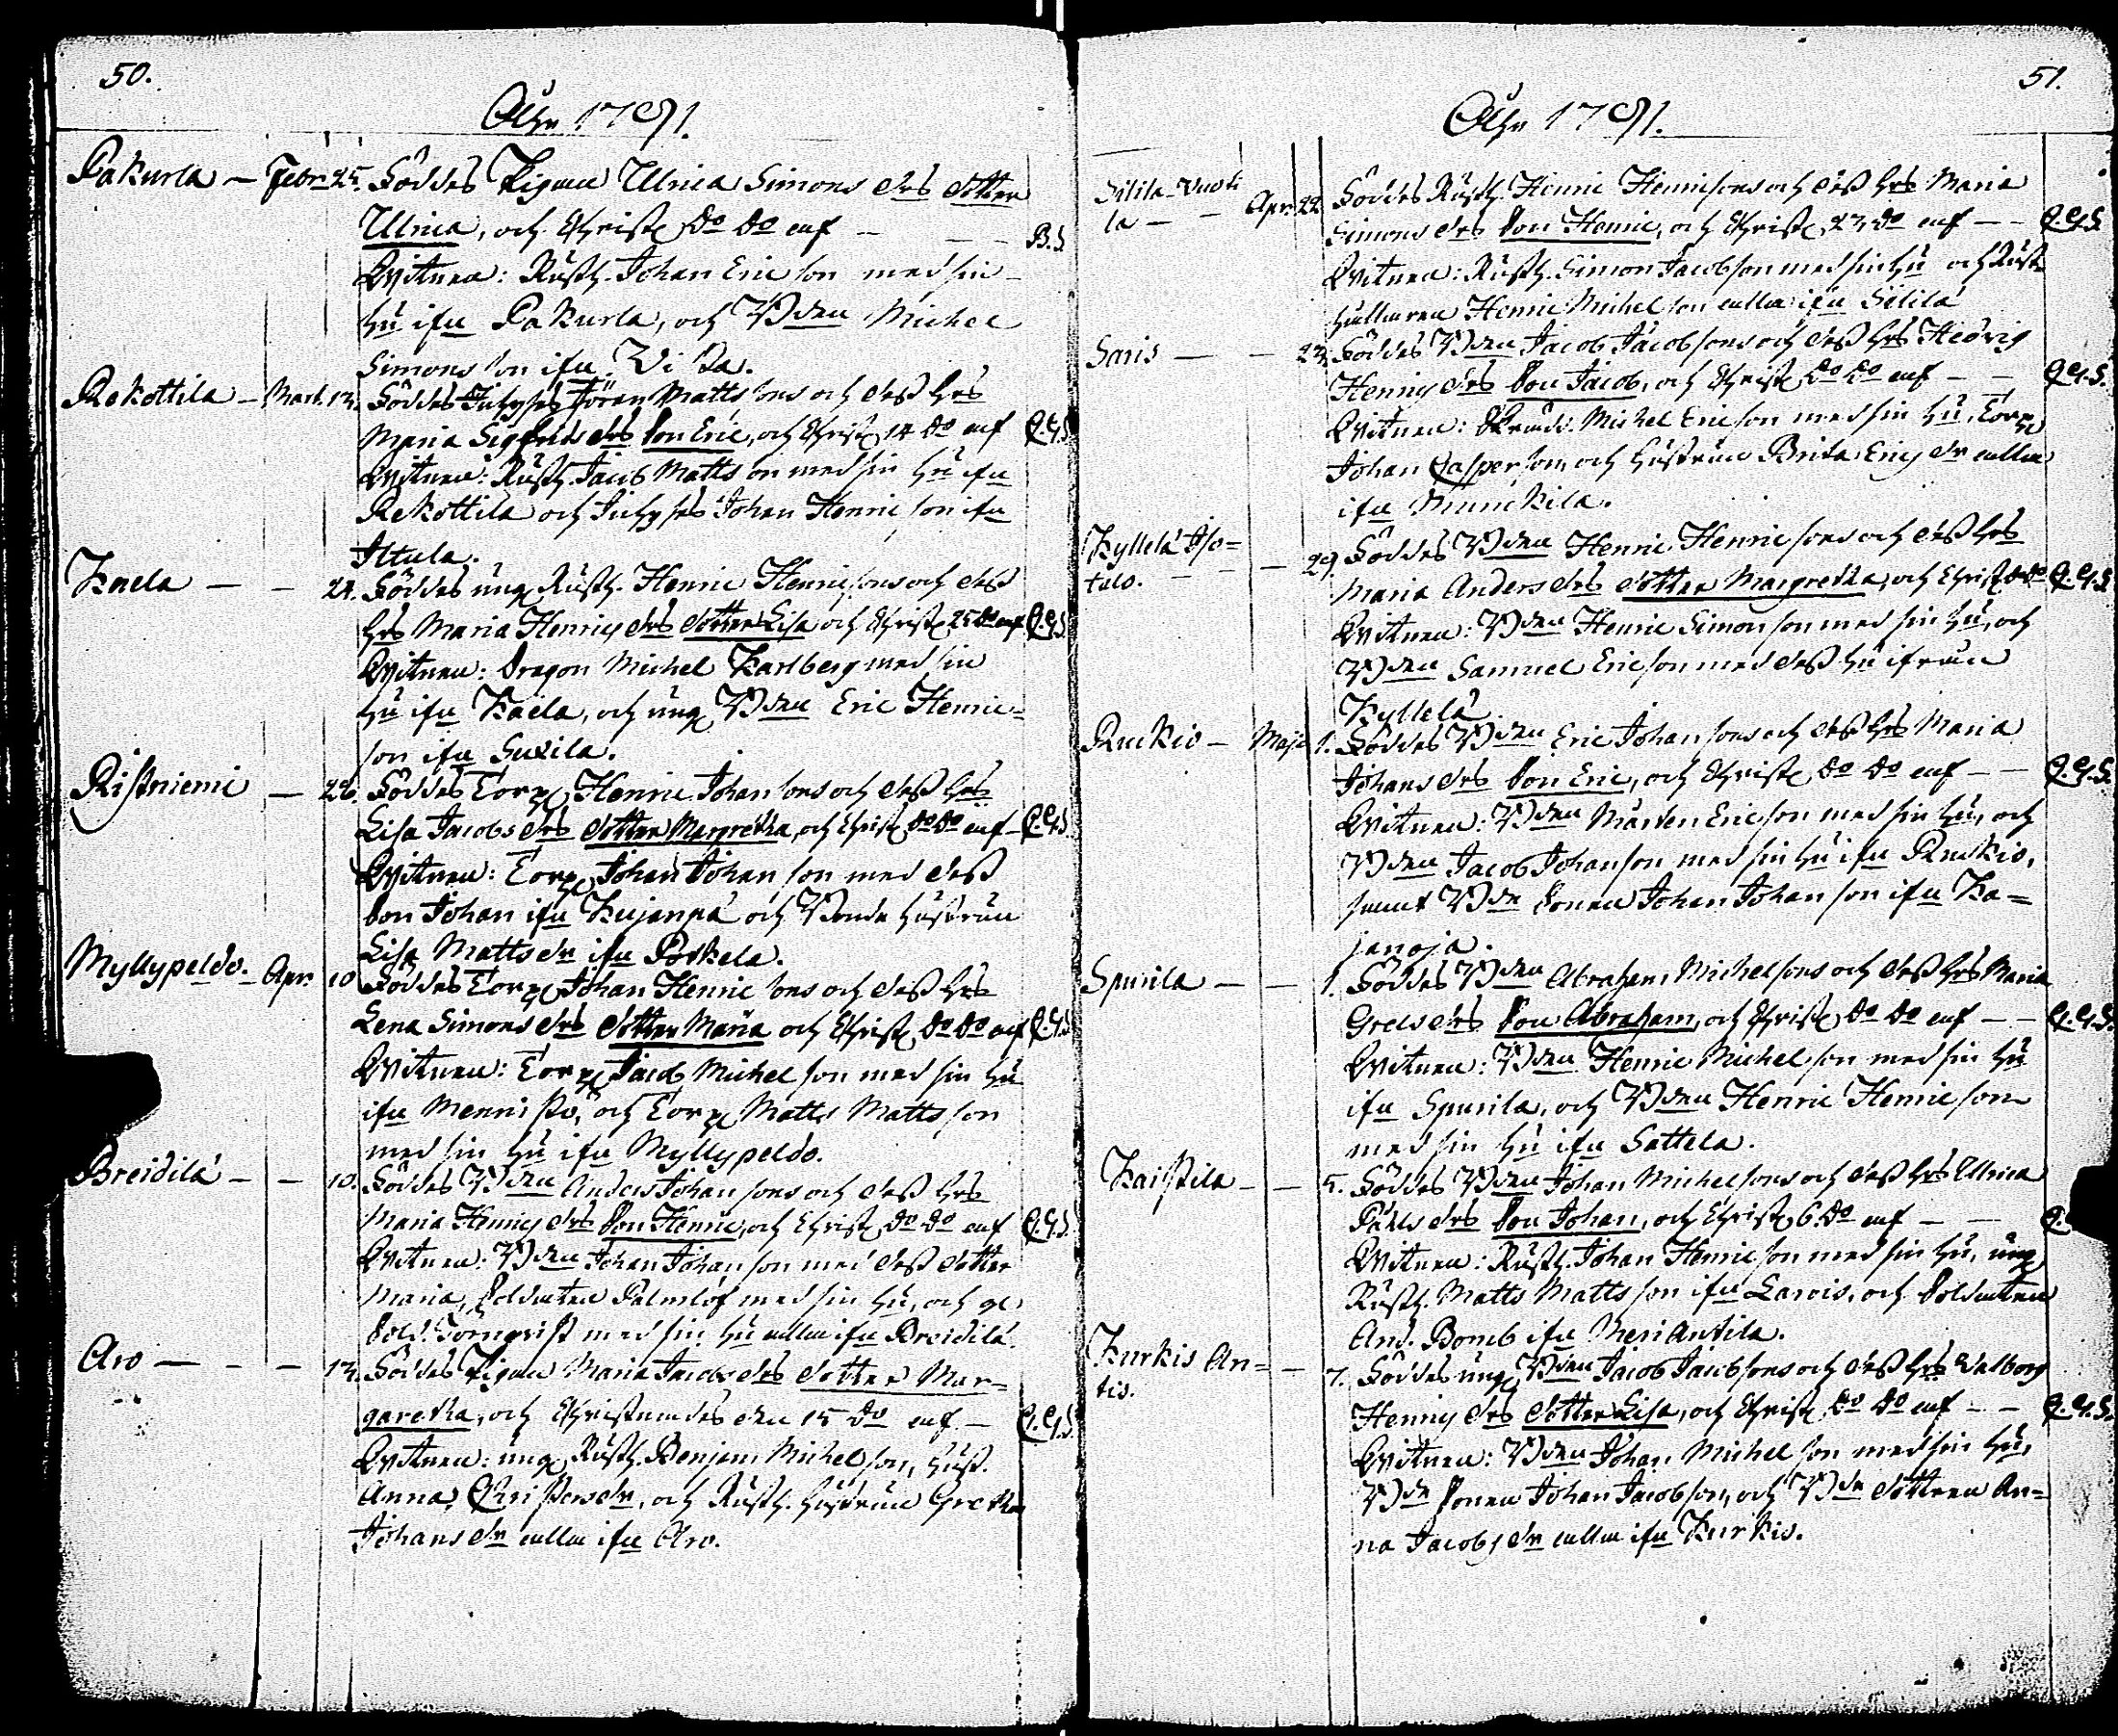 50.
Åhr 1791.
Pakurla — Febr. 25. Föddes Pigan Ulrica Simons drs dotter
Ulrica, och Christ. do do af — — B.S.
Vitnen: Rusth. Johan Ericson med sin
hu ifn Pakurla, och Bden Michel
Simonsson ifn
Rekottila — Mart. 13. Föddes Inhyses Jöran Mattssons och dess hrs
Maria Sigfrids drs Son Eric, och Christ. 14 do af
Vitnen: Rusth. Jacob Mattsson med sin hu ifn
Rekottila och Inhyses Johan Henricson ifn
Iltula.
Kaela — — 24. Föddes ung Rusth. Henric Henricsons och dess
hrs Maria Henrics drs dotter Lisa och Christ. 25 do af
Vitnen: Dragon Michel Karlberg med sin
hu ifn Kaela, och ung Bden Eric Henric=
son ifn Suxila.
Ristniemi — 28. Föddes Torp. Henric Johansons och dess hrs
Lisa Jacobs drs dotter Margretha, och Christ. do do af —
Vitnen: Torp. Johan Johanson med dess
Son Johan ifn Kujanpä och Bonde hustrun
Lisa Matts dr ifn Poikela.
Myllypeldo. — Apr. 10 Föddes Torp. Johan Henricsons och dess hrs
Lena Simons drs dotter Maria och Christ. do do af
Vitnen: Torp. Jacob Michelson med sin hu
ifn Mennistö, och Torp. Matts Mattsson
med sin hu ifn Myllypeldo.
Breidilä — — 10. Föddes Bden Anders Johansons och dess hrs
Maria Henrics drs Son Henric, och Christ. do do af
Vitnen: Bden Johan Johanson med dess dotter
Maria, Soldaten Palmlöf med sin hu, och gl.
Sold. Törnqvist med sin hu alla ifn Breidilä.
Aro — — 13. Föddes Pigan Maria Jacobs drs dotter Mar=
garetha, och Christnades den 15 do af —
Vitnen: ung Rusth. Benjam. Michelson, hust.
Anna Christers dr, och Rusth. hustrun Gretha
Johans dr alla ifn Aro.
51.
Åhr 1791.
Silila-Vuoti
la — — Apr. 22. Föddes Rusth. Henric Henricsons och dess hrs Maria
Simons drs Son Henric, och Christ. 23 do af — —
Vitnen: Rusth. Simon Jacobson med sin hu och Rust
hållaren Henric Michelson alla ifn Sililä
Saris — — 23. Föddes Bden Jacob Jacobsons och dess hrs Hedvig
Henrics drs Son Jacob, och Christ. do do af — —
Vitnen: Michel Ericson med sin hu, Torp.
Johan Casperson, och hustrun Brita Erics dr alla
ifn Munckila.
Kyllelä Iso=
talo. — — 29. Föddes Bden Henric Henricsons och dess hrs
Maria Anders drs dotter Margretha, och Christ. do do
Vitnen: Bden Henric Simonson med sin hu, och
Bden Samuel Ericson med dess hu ifrån
Kyllelä
Ruckio — Maji 1. Föddes Bden Eric Johansons och dess hrs Maria
Johans drs Son Eric, och Christ. do do af — —
Vitnen: Bden Mårten Ericson med sin hu, och
Bden Jacob Johanson med sin hu ifn Ruckio,
samt Bde Sonen Johan Johanson ifn Ka=
janoja.
Spurila — — 1. Föddes Bden Abraham Michelsons och dess hrs Maria
Grels drs Son Abraham, och Christ. do do af — —
Vitnen: Bden Henric Michelson med sin hu
ifn Spurila, och Bden Henric Henricson
med sin hu ifn Sattela.
Kaistila — — 5. Föddes Bden Johan Michelsons och dess hrs Ulrica
Påhls drs Son Johan, och Christ. 6. do af — —
Vitnen: Rusth. Johan Henricson med sin hu, ung
Rusth. Matts Mattsson ifn Larois, och Soldaten
And. Bomb ifn Meriantila.
Kurkis An=
tis. — 7. Föddes ung Bden Jacob Jacobsons och dess hrs Walborg
Henrics drs dotter Lisa, och Christ. do do af — —
Vitnen: Bden Johan Michelson med sin hu,
Bde Sonen Johan Jacobson, och Bde dottren An=
na Jacobs dr alla ifn Kurkis.